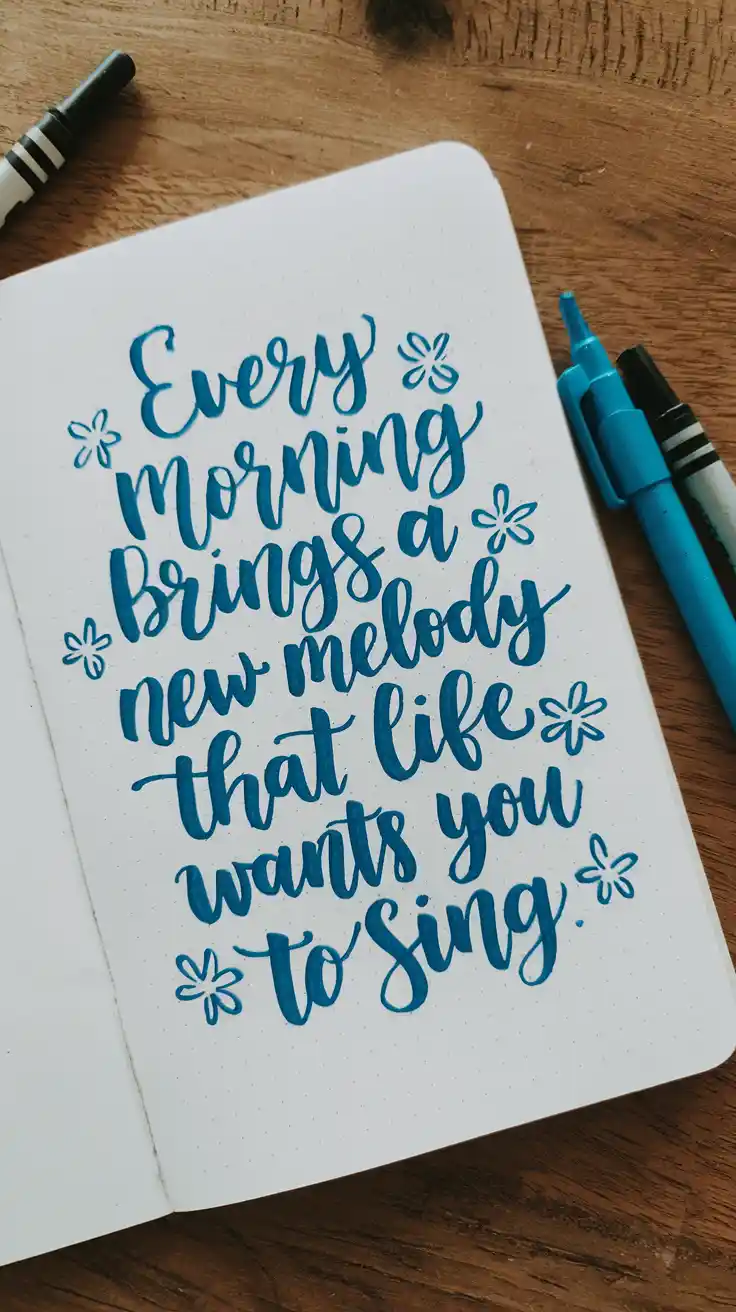 Every
Morning
Brings a
new melody
that life
wants you
to Sing.